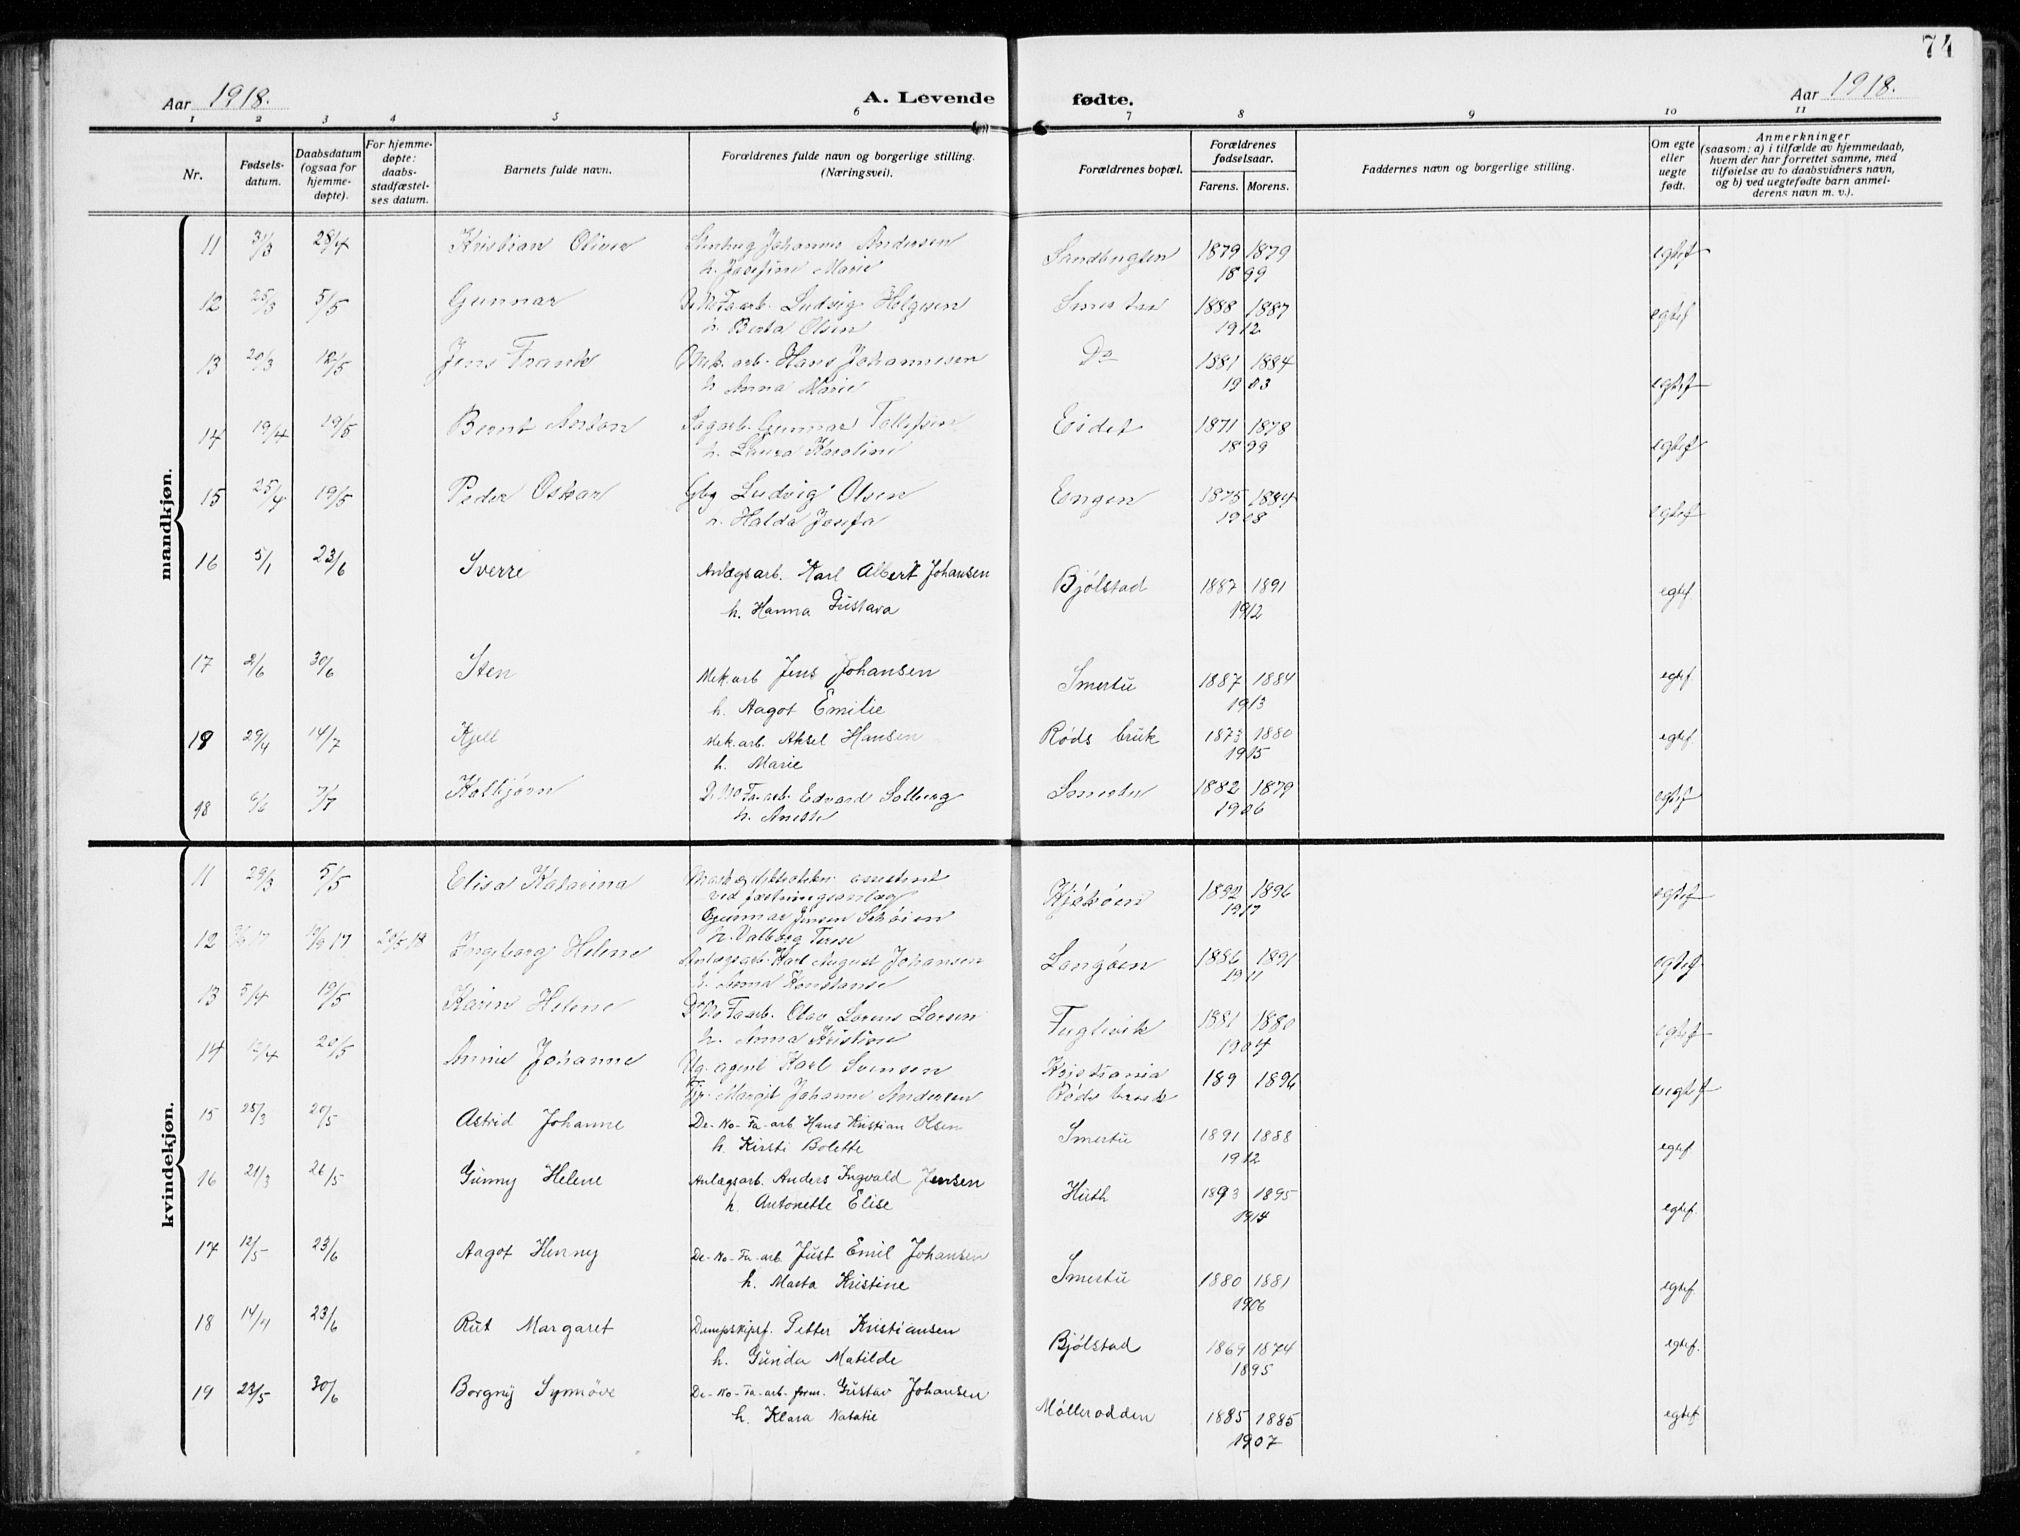 74
Aar 1918.
A. Levende fødte.
Aar 1918.
1 2 3 4 5 6 7 8 9 10 11
Nr.
Fødsels-
datum.
Daabsdatum
(ogsaa for
hjemme-
døpte).
For hjemme-
døpte:
daabs-
stadfæstel-
ses datum.
Barnets fulde navn.
Forældrenes fulde navn og borgerlige stilling.
(Næringsvei).
Forældrenes bopæl.
Forældrenes
fødselsaar.
Farens. Morens.
Faddernes navn og borgerlige stilling.
Om egte
eller
uegte
født.
Anmerkninger
(saasom: a) i tilfælde av hjemmedaab,
hvem der har forrettet samme, med
tilføielse av to daabsvidners navn,
og b) ved uegtefødte barn anmel-
derens navn m. v.).
mandkjøn.
11 31/3 28/4 Kristian Oliver Stenhug Johannes Andersen 1879 1879 egtef
h. Josefine Marie 1899
12 25/3 5/5 Gunnar De No Fa arb. Ludvig Holgersen Smertu 1888 1887 egtef
h. Berta Olsen 1912
13 20/3 18/5 Jens Frank Mek. arb. Hans Johannesen Do 1881 1884 egtef
h. Anna Marie 1903
14 19/4 19/5 Bernt Anton Sagarb. Gunnar Tollefsen Eidet 1871 1878 egtef
h. Laura Karoline 1899
15 25/4 19/5 Peder Oskar Gbg Ludvig Olsen Engen 1875 1884 egtef
h. Halda Josefa 1908
16 5/1 23/6 Sverre Anlægsarb. Karl Albert Johansen Bjølstad 1887 1891 egtef.
h. Hanna Gustava 1912
17 2/6 30/6 Sten Mek.arb Jens Johansen Smertu 1887 1884 egtef.
h. Aagot Emilie 1913
18 29/4 14/7 Kjell Mek.arb. Aksel Hansen Røds bruk 1873 1880 egtef.
h. Marie 1915
18 6/6 7/7 Kolbjørn De No Fa. arb. Edvard Solberg Smertu 1882 1879 egtef
h. Aneste 1906
kvindekjøn.
11 29/3 5/5 Elisa Katarina assistent
ved fæstningsanlæg Kjøkøen 1892 1896 egtef
Gunnar Jensen Schøien 1917
h. Valborg Terese
12 19/8 17 29/5 18 Ingeborg Helene Anlægsarb. Karl August Johansen Langøen 1886 1891 egtef
h. Anna Konstanse 1911
13 5/4 19/5 Karin Helene De No Fa arb. Olav Lorens Larsen Fuglevik 1881 1880 egtef
h. Anna Kristine 1904
14 12/4 20/5 Annie Johanne Ug. agent Karl Svensen Kristiania 189 1896 uegtef
Pige Margit Johanne Andersen Røds bruk
15 25/3 20/5 Astrid Johanne De-No-Fa-arb Hans Kristian Olsen Smertu 1891 1888 egtef.
h. Kirsti Bolette 1912
16 21/3 26/5 Gunny Helene Anlægsarb. Anders Ingvald Jensen Huth 1893 1895 egtef.
h. Antonette Elise 1914
17 12/5 23/6 Aagot Henny De-No-Fa-arb Just Emil Johansen Smertu 1880 1881 egtef.
h. Marta Kristine 1906
18 14/4 23/6 Rut Margaret Dampskipsf. Petter Kristiansen Bjølstad 1869 1874 egtef.
h. Gunda Matilde 1895
19 23/5 30/6 Borgny Synnøve De-No-Fa-arb. form. Gustav Johansen Møllerodden 1885 1885 egtef.
h. Klara Natalie 1907